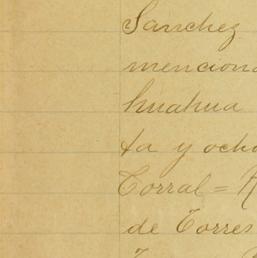 Sanchez
menciona
huahua
ta y ocho
Corral =
de Torres